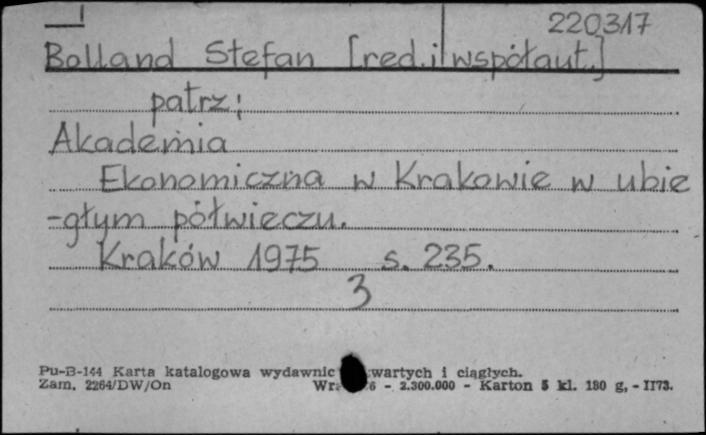 220317
Bolland Stefan [red. i współaut.]
patrz:
Akademia
Ekonomiczna w Krakowie w ubie
-głym półwieczu.
Kraków 1975 s. 235.
3
Pu-B-144 Karta katalogowa wydawnic wartych i ciągłych.
Zam. 2264/DW/On 6 - 2.300.000 - Karton 5 kl. 180 g, - II73.